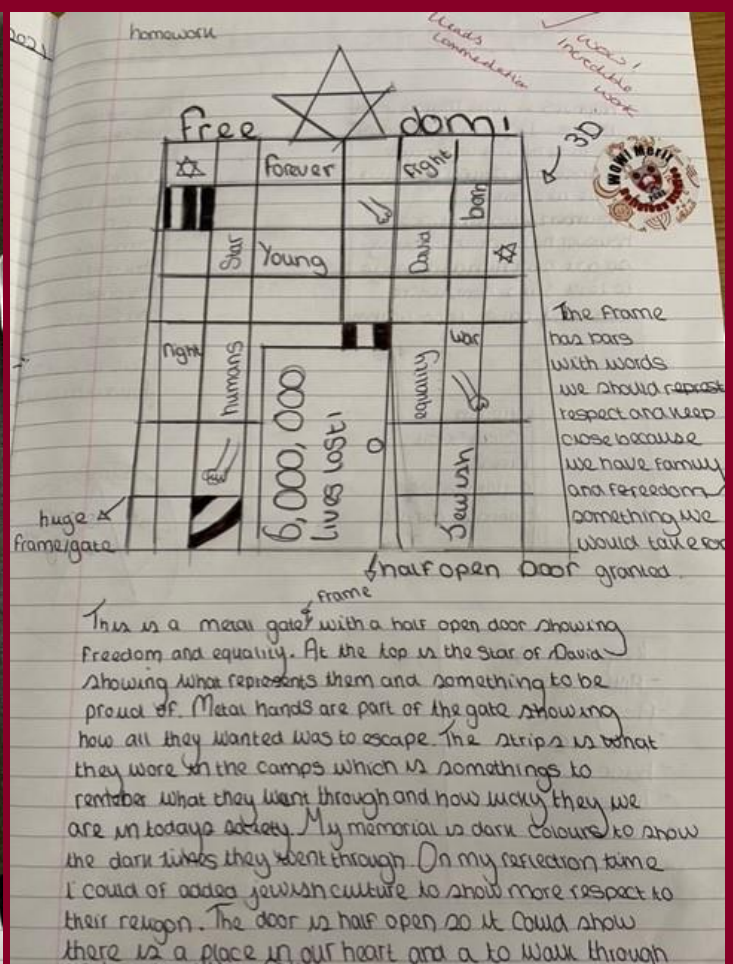 2021
homework
Heads
commendation
WOW!
Incredible
work
Free dom!
3D
WOW! Merit
Forever
Fight
born
Star
Young
David
right
humans
war
equality
6,000,000
lives lost!
Jewish
huge
frame/gate
half open Door
The Frame
has bars
with words
we should
respect and keep
close because
we have family
and fereedom
something we
would take for
granted.
frame
This is a metal gate with a half open door showing
Freedom and equality. At the top is the Star of David
showing what represents them and something to be
proud of. Metal hands are part of the gate showing
how all they wanted was to escape. The strips is what
they wore in the camps which is somethings to
remember what they went through and how lucky they we
are in todays society. My memorial is dark colours to show
the dark times they went through. On my reflection time
I could of added jewish culture to show more respect to
their religon. The door is half open so it could show
there is a place in our heart and a to walk through